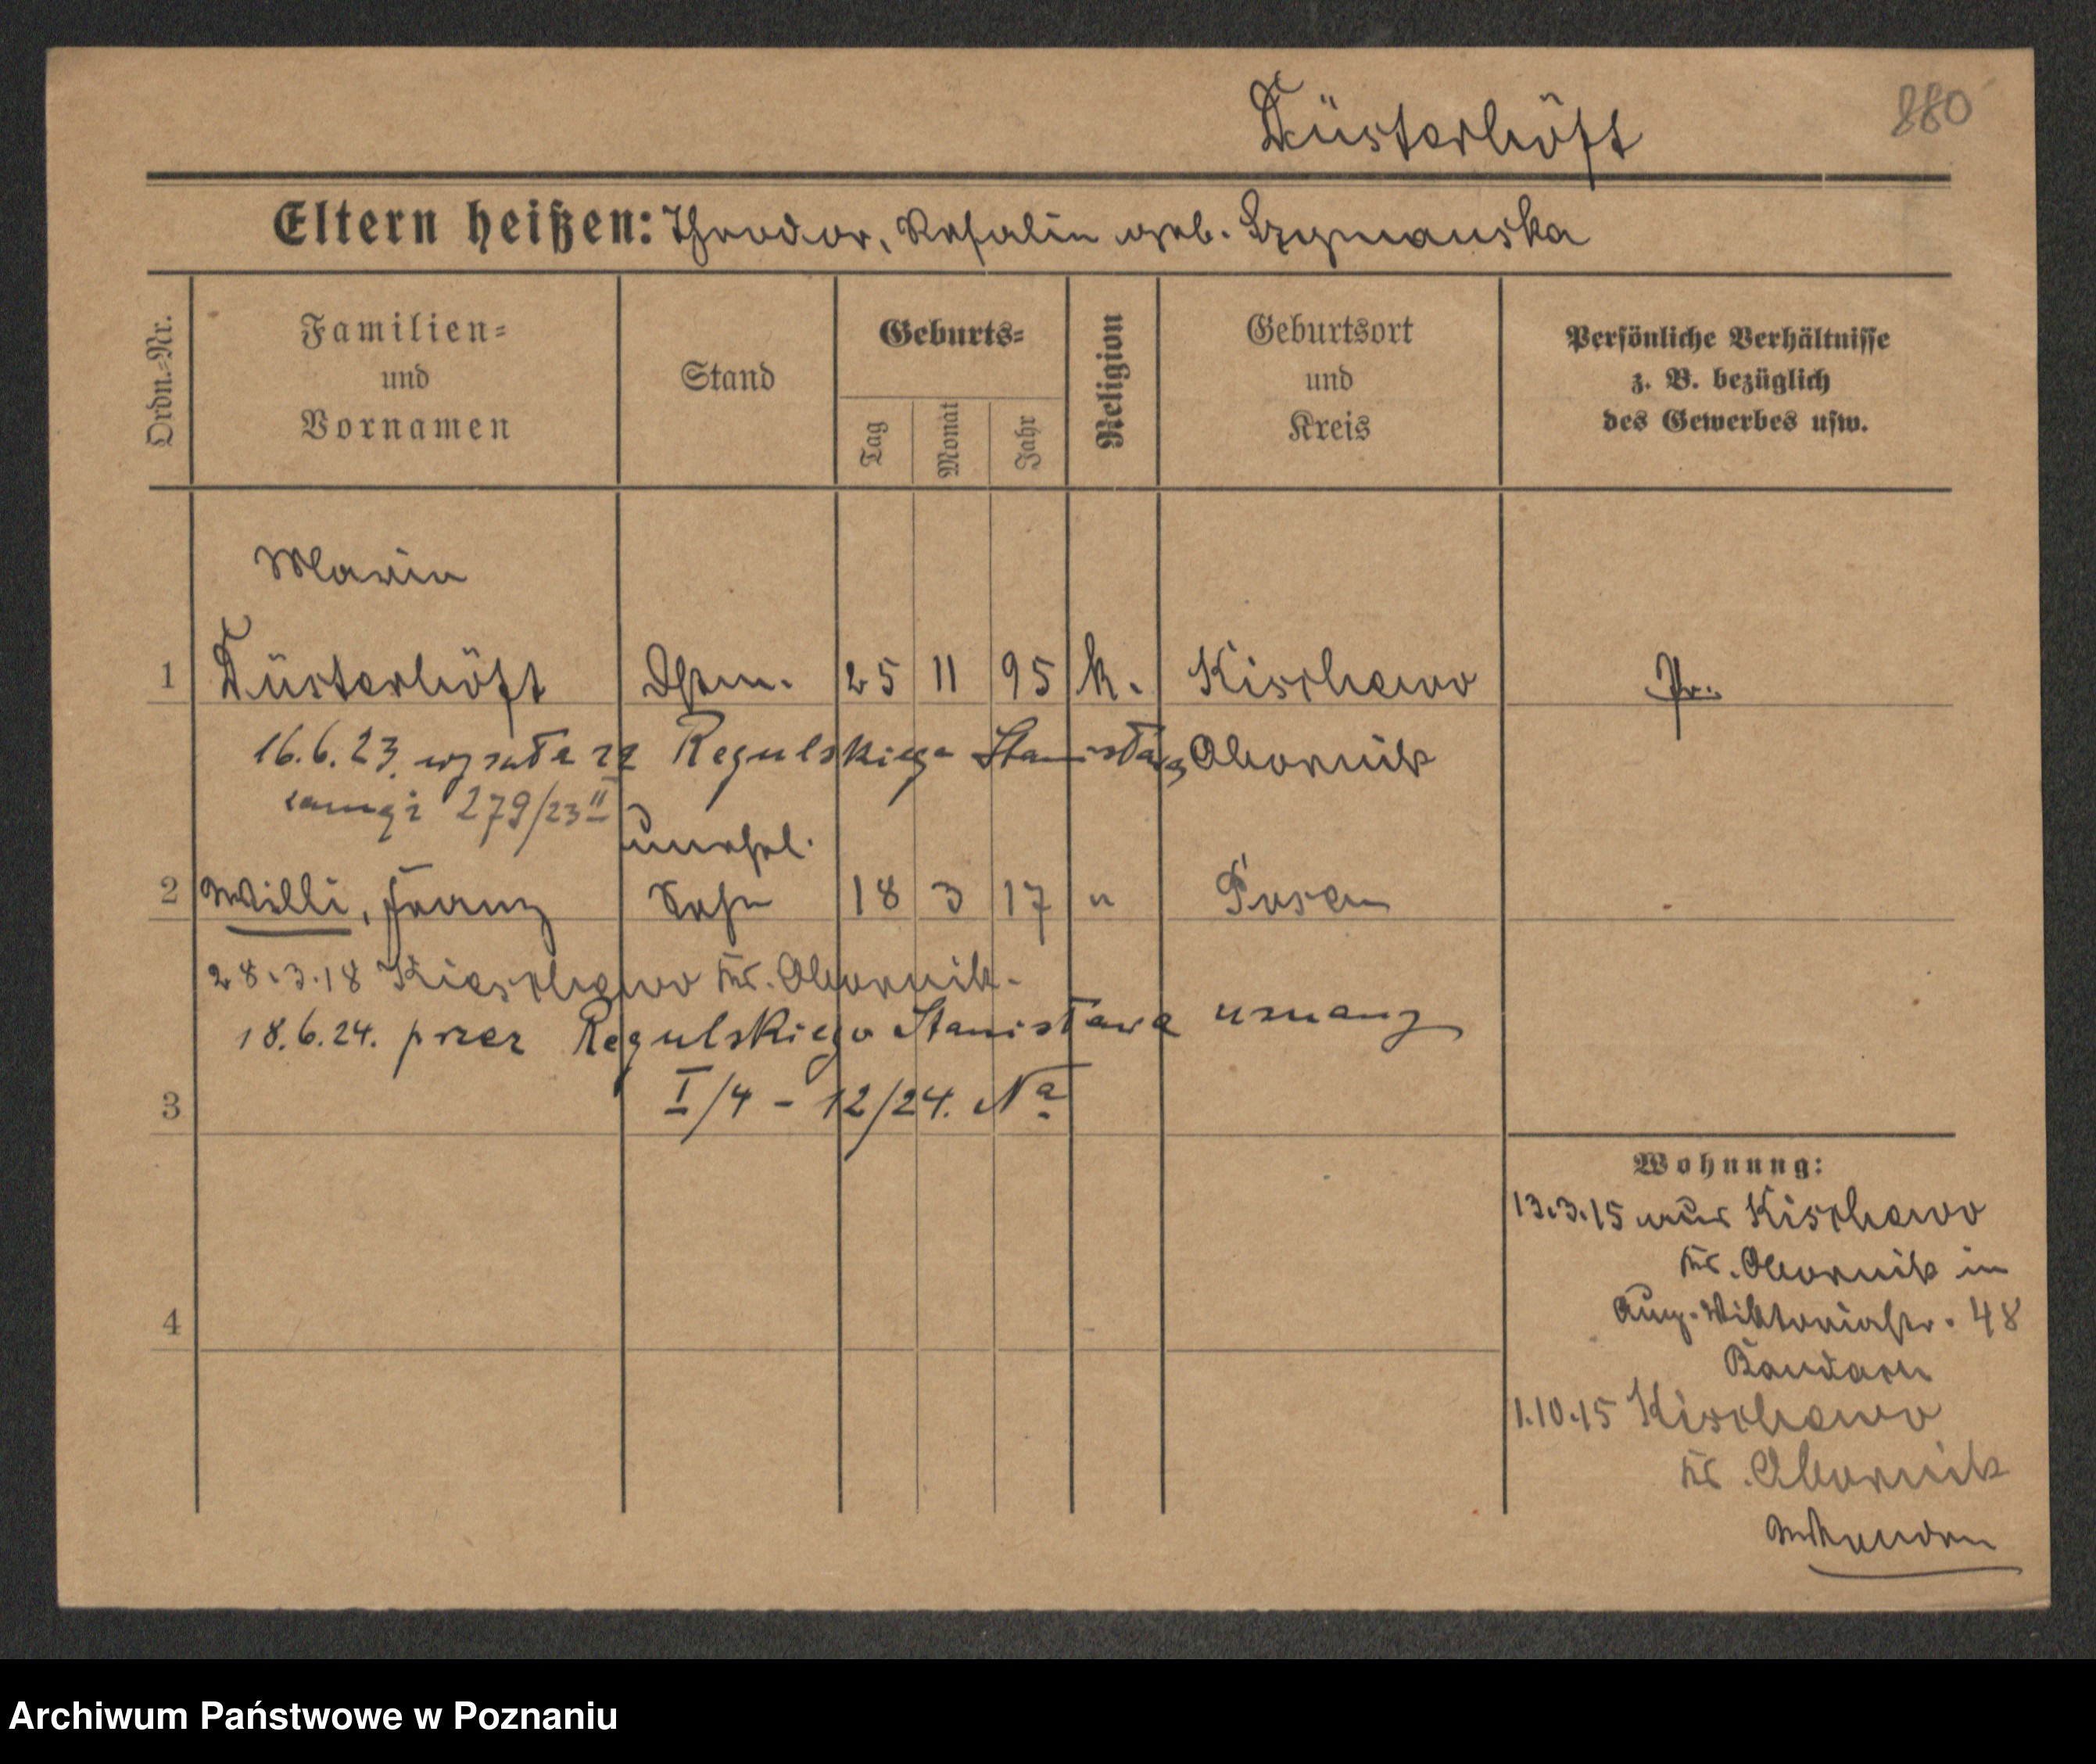 880
Düsterhöft
Eltern heißen: Theodor, Rosalie geb. Szymanska
Ordn.=Nr.
Familien=
und
Vornamen
Stand
Geburts=
Tag
Monat
Jahr
Religion
Geburtsort
und
Kreis
Persönliche Verhältnisse
z. B. bezüglich
des Gewerbes usw.
Marie
1 Düsterhöft 25 11 95 k. Kischewo Pr.
16.6.23. wyszła za Regulskiego Stanisława Obornik
279/23 II
unehel.
2 Willi, Franz Sohn 18 3 17 " Posen
28.3.18 Kischewo Kr. Obornik.
18.6.24. przez Regulskiego Stanisława uznany
3 I/4 - 12/24. Na
4
Wohnung:
13.3.15 aus Kischewo
Kr. Obornik in
Aug. Viktoriastr. 48
1.10.15 Kischewo
Kr. Obornik